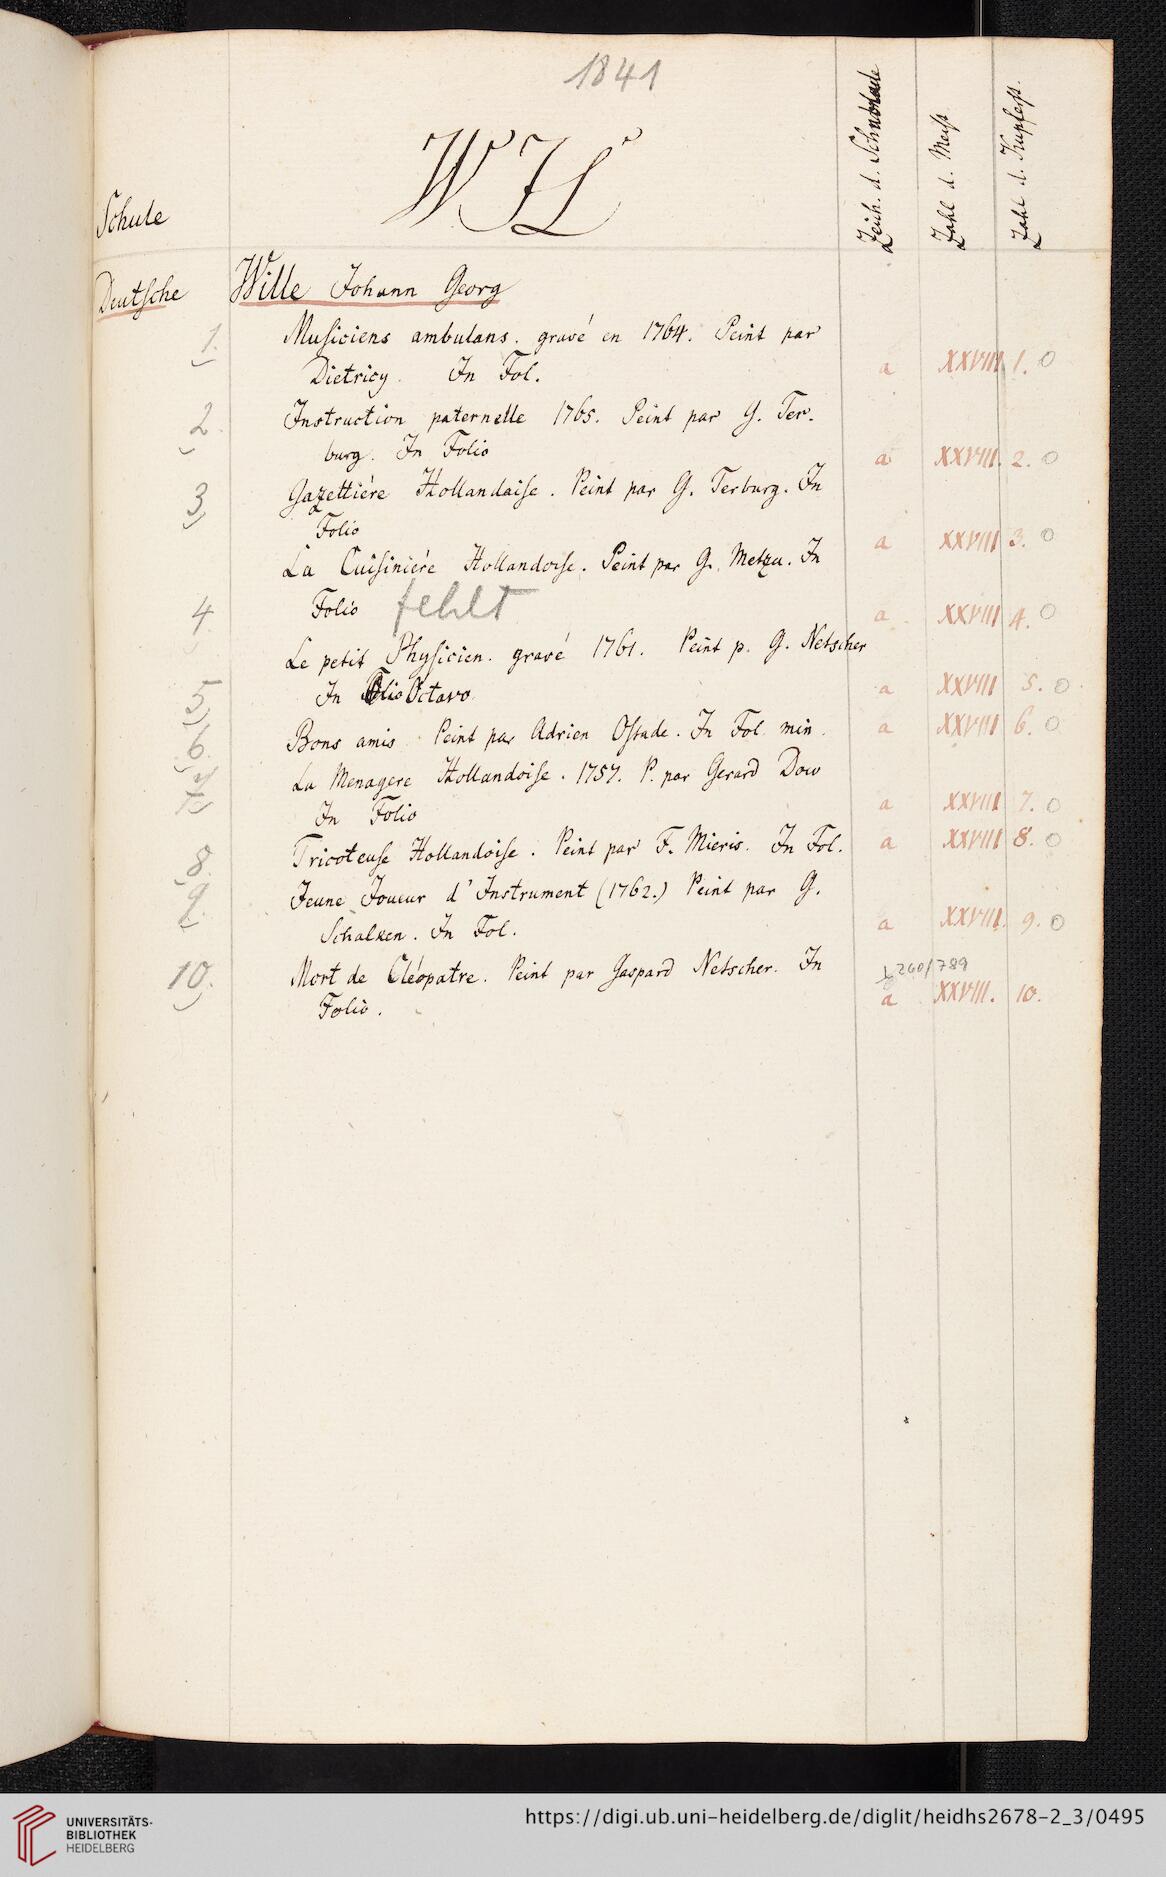 1841
W IL
Schule
Zeich. d. Schublade
Zahl d. Meist.
Zahl d. Kupferst.
Deutsche Wille Johann Georg
1. Musiciens ambulans. gravé en 1764. Peint par
Dietricy. In Fol. a XXVIII 1. O
2. Instruction paternelle 1765. Peint par G. Ter-
burg. In Folio a XXVIII. 2. O
3 Gazettiére Hollandaise. Peint par G. Terburg. In
Folio a XXVIII 3. O
La Cuisiniére Hollandoise. Peint par G. Metzu. In
4. Folio fehlt a XXVIII 4. O
Le petit Physicien. gravé 1761. Peint p. G. Netscher
5. In Folio Octavo a XXVIII 5. O
6. Bons amis Peint par Adrien Ostade. In Fol. min. a XXVIII 6. O
7. La Menagere Hollandoise. 1757. P. par Gerard Dow
In Folio a XXVIII 7. O
8. Tricoteuse Hollandoise. Peint par F. Mieris. In Fol. a XXVIII 8. O
9. Jeune Joueur d'Instrument (1762.) Peint par G.
Schalken. In Fol. a XXVIII. 9. O
10. Mort de Cléopatre. Peint par Gaspard Netscher. In
260/789
Folio. a XXVIII. 10.
UNIVERSITÄTS-
BIBLIOTHEK
HEIDELBERG
https://digi.ub.uni-heidelberg.de/diglit/heidhs2678-2_3/0495